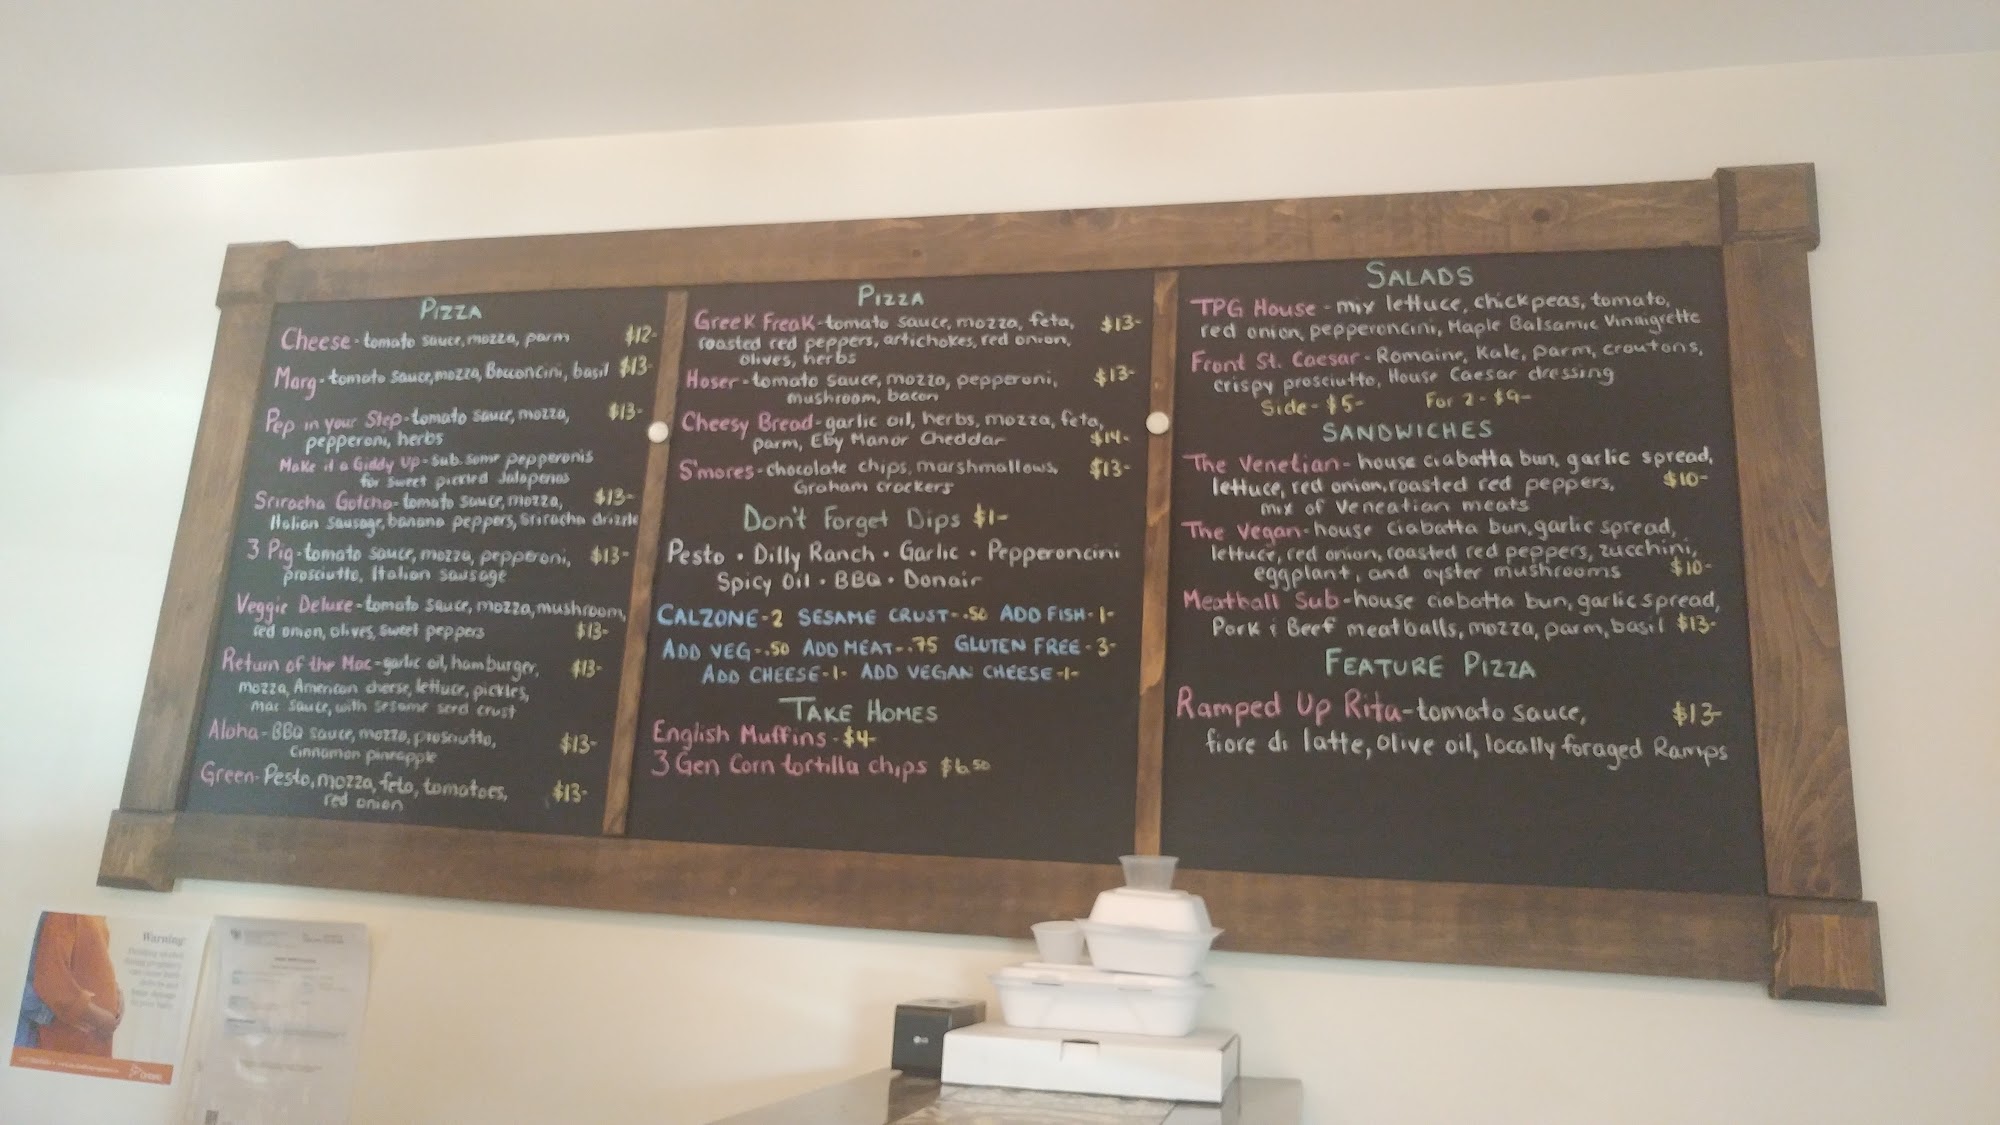 PIZZA
Cheese - tomato sauce, mozza, parm $12-
Marg - tomato sauce, mozza, Bocconcini, basil $13-
Pep in your Step - tomato sauce, mozza, $13-
pepperoni, herbs
Make it a Giddy Up - sub some pepperonis
for sweet pickled Jalapenos
Sriracha Gotcha - tomato sauce, mozza, $13-
Italian sausage, banana peppers, Sriracha drizzle
3 Pig - tomato sauce, mozza, pepperoni, $13-
prosciutto, Italian sausage
Veggie Deluxe - tomato sauce, mozza, mushroom,
red onion, olives, sweet peppers $13-
Return of the Mac - garlic oil, hamburger, $13-
mozza, American cheese, lettuce, pickles,
mac sauce, with sesame seed crust
Aloha - BBQ sauce, mozza, prosciutto, $13-
Cinnamon pineapple
Green - Pesto, mozza, feta, tomatoes, $13-
red onion
PIZZA
Greek Freak - tomato sauce, mozza, feta, $13-
roasted red peppers, artichokes, red onion,
olives, herbs
Hoser - tomato sauce, mozza, pepperoni, $13-
mushroom, bacon
Cheesy Bread - garlic oil, herbs, mozza, feta,
parm, Eby Manor Cheddar $14-
S'mores - chocolate chips, marshmallows, $13-
Graham crackers
Don't Forget Dips $1-
Pesto • Dilly Ranch • Garlic • Pepperoncini
Spicy Oil • BBQ • Donair
CALZONE - 2 SESAME CRUST - .50 ADD FISH - 1-
ADD VEG - .50 ADD MEAT - .75 GLUTEN FREE - 3-
ADD CHEESE - 1- ADD VEGAN CHEESE - 1-
TAKE HOMES
English Muffins - $4-
3 Gen Corn tortilla chips $6.50
SALADS
TPG House - mix lettuce, chickpeas, tomato,
red onion, pepperoncini, Maple Balsamic Vinaigrette
Front St. Caesar - Romaine, Kale, parm, croutons,
crispy prosciutto, House Caesar dressing
Side - $5- For 2 - $9-
SANDWICHES
The Venetian - house ciabatta bun, garlic spread,
lettuce, red onion, roasted red peppers, $10-
mix of Veneatian meats
The Vegan - house ciabatta bun, garlic spread,
lettuce, red onion, roasted red peppers, zucchini,
eggplant, and oyster mushrooms $10-
Meatball Sub - house ciabatta bun, garlic spread,
Pork & Beef meatballs, mozza, parm, basil $13-
FEATURE PIZZA
Ramped Up Rita - tomato sauce, $13-
fiore di latte, olive oil, locally foraged Ramps
Warning:
LG